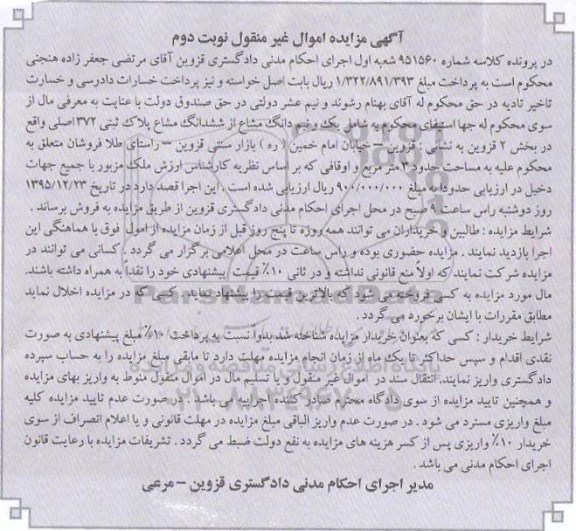 آگهی مزایده اموال غیر منقول نوبت دوم
در پرونده کلاسه شماره ۹۵۱۵۶۰ شعبه اول اجرای احکام مدنی دادگستری قزوین آقای مرتضی جعفر زاده هنجنی
محکوم است به پرداخت مبلغ ۱/۳۲۲/۸۹۱/۳۹۳ ریال بابت اصل خواسته و نیز پرداخت خسارات دادرسی و خسارت
تاخیر تادیه در حق محکوم له آقای بهنام رشوند و نیم عشر دولتی در حق صندوق دولت با عنایت به معرفی مال از
سوی محکوم له جهت استیفای محکوم به شامل یک ونیم دانگ مشاع از ششدانگ مشاع پلاک ثبتی ۳۷۲ اصلی واقع
در بخش ۲ قزوین به نشانی : قزوین – خیابان امام خمین ( ره ) بازار سنتی قزوین – راستای طلا فروشان متعلق به
محکوم علیه به مساحت حدود ۳۰ متر مربع و اوقافی که بر اساس نظریه کارشناس ارزش ملک مزبور با جمیع جهات
دخیل در ارزیابی حدودا به مبلغ ۹۰۰/۰۰۰/۰۰۰ ریال ارزیابی شده است . این اجرا قصد دارد در تاریخ ۱۳۹۵/۱۲/۲۳
روز دوشنبه راس ساعت ۹ صبح در محل اجرای احکام مدنی دادگستری قزوین از طریق مزایده به فروش برساند .
شرایط مزایده : طالبین و خریداران می توانند همه روزه تا پنج روز قبل از زمان مزایده از اموال فوق با هماهنگی این
اجرا بازدید نمایند . مزایده حضوری بوده و راس ساعت در محل اعلامی برگزار می گردد . کسانی می توانند در
مزایده شرکت نمایند که اولاً منع قانونی نداشته و در ثانی ۱۰٪ قیمت پیشنهادی خود را نقدا به همراه داشته باشند.
مال مورد مزایده به کسی فروخته می شود که بالاترین قیمت را پیشنهاد نماید . کسی که در مزایده اخلال نماید
مطابق مقررات با ایشان برخورده می گردد .
شرایط خریدار : کسی که بعنوان خریدار مزایده شناخته شد بدوا نسبت به پرداخت ۱۰٪ مبلغ پیشنهادی به صورت
نقدی اقدام و سپس حداکثر تا یک ماه از زمان انجام مزایده مهلت دارد تا مابقی مبلغ مزایده را به حساب سپرده
دادگستری واریز نمایند. انتقال سند در اموال غیر منقول و یا تسلیم مال در اموال منقول منوط به واریز بهای مزایده
و همچنین تایید مزایده از سوی دادگاه محترم صادر کننده اجراییه می باشد . در صورت عدم تایید مزایده کلیه
مبلغ واریزی مسترد می شود . در صورت عدم واریز الباقی مبلغ مزایده در مهلت قانونی و یا اعلام انصراف از سوی
خریدار ۱۰٪ واریزی پس از کسر هزینه های مزایده به نفع دولت ضبط می گردد . تشریفات مزایده با رعایت قانون
اجرای احکام مدنی می باشد .
مدیر اجرای احکام مدنی دادگستری قزوین – مرعی